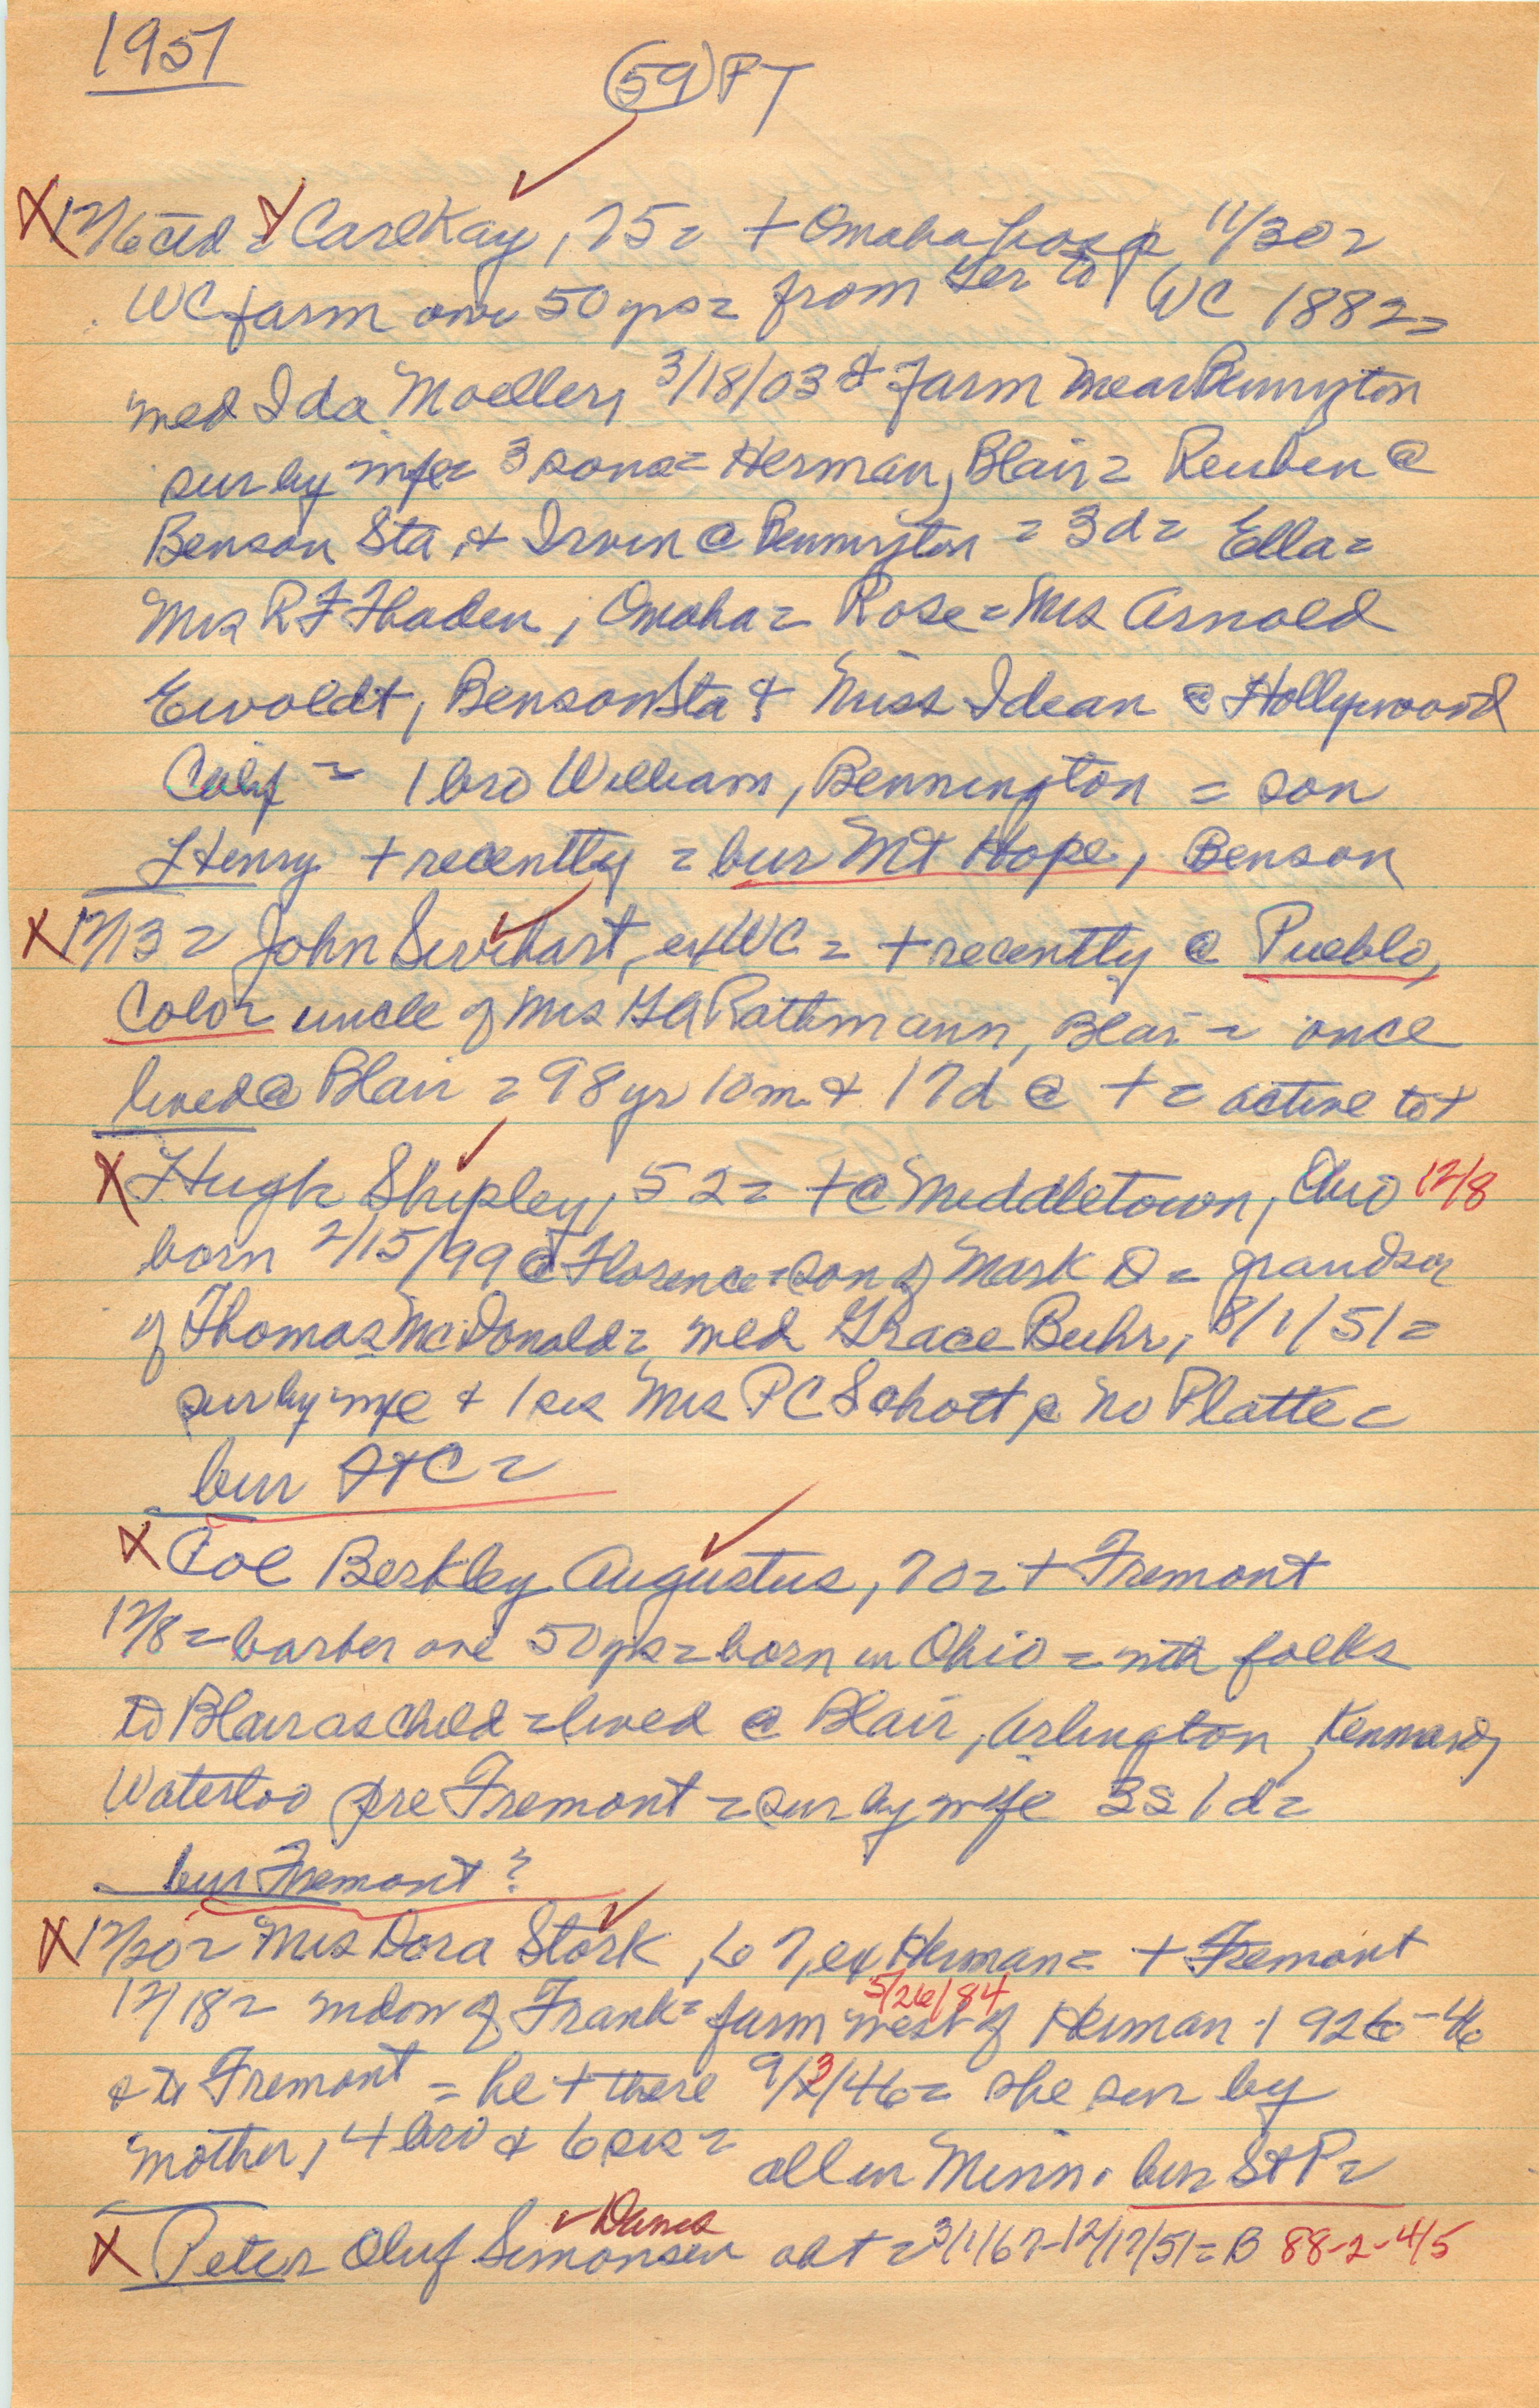 1951
59 PT
12/6 ed = Carl Kay, 75 = + Omaha hosp 11/30 =
WC farm ove 50 yrs = from Ger to WC 1882 =
med Ida Moeller, 3/18/03 & farm near Bennington
sur by wife = 3 sons = Herman, Blair = Reuben @
Benson Sta, & Irvin @ Bennington = 3 d = Ella =
Mrs R F Thaden, Omaha = Rose = Mrs Arnold
Ewoldt, Benson Sta & Miss Idean @ Hollywood
Calif = 1 bro William, Bennington = son
Henry + recently = bur Mt Hope, Benson
12/13 = John, ex WC = + recently @ Pueblo,
Colo = uncle of Mrs Rathmann, Blair = once
lived @ Blair = 98 yr 10 m & 17 d @ + = active to +
Hugh Shipley, 52 = + @ Middletown, Ohio 12/8
born 2/15/99 @ Florence = son of Mark D = grandson
of Thomas McDonald = med Grace Buhr, 8/1/51 =
sur by wife & 1 sis Mrs P C Schott @ No Platte =
bur =
Col Berkley Augustus, 70 = + Fremont
12/8 = barber ove 50 yrs = born in Ohio = with folks
to Blair as child = lived @ Blair, Arlington, Kennard,
Waterloo pre Fremont = sur by wife 3 s 1 d =
bur Fremont?
12/20 = Mrs Dora Stork, 67, ex Herman = + Fremont
5/26/84
12/18 = widow of Frank = farm west of Herman - 1926-46
& to Fremont = he + there 9/3/46 = she sur by
mother, 4 bro & 6 sis = all in Minn. bur St P =
Danes
Peter Oluf Simonsen obt = 3/1/67-12/17/51 = B 88-2-4/5